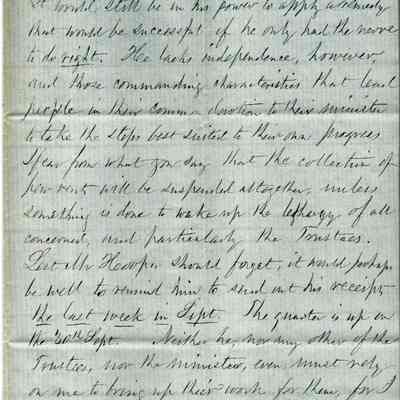 It would still be in his power to apply a remedy
that would be successful if he only had the nerve
to do right. He lacks independence, however,
and those commanding characteristics that lead
people in their common devotion to their minister
to take the steps best suited to their own progress
I fear from what you say that the collection of
pew rent will be suspended altogether, unless
something is done to wake up the lethargy of all
concerned, and particularly the Trustees.
Lest Mr Hooper should forget, it would perhaps
be well to remind him to send out his receipts
the last week in Sept. The quarter is up on
the 30th Sept. Neither he, nor any other of the
Trustees, nor the minister, even must rely
on me to bring up their work for them, for I